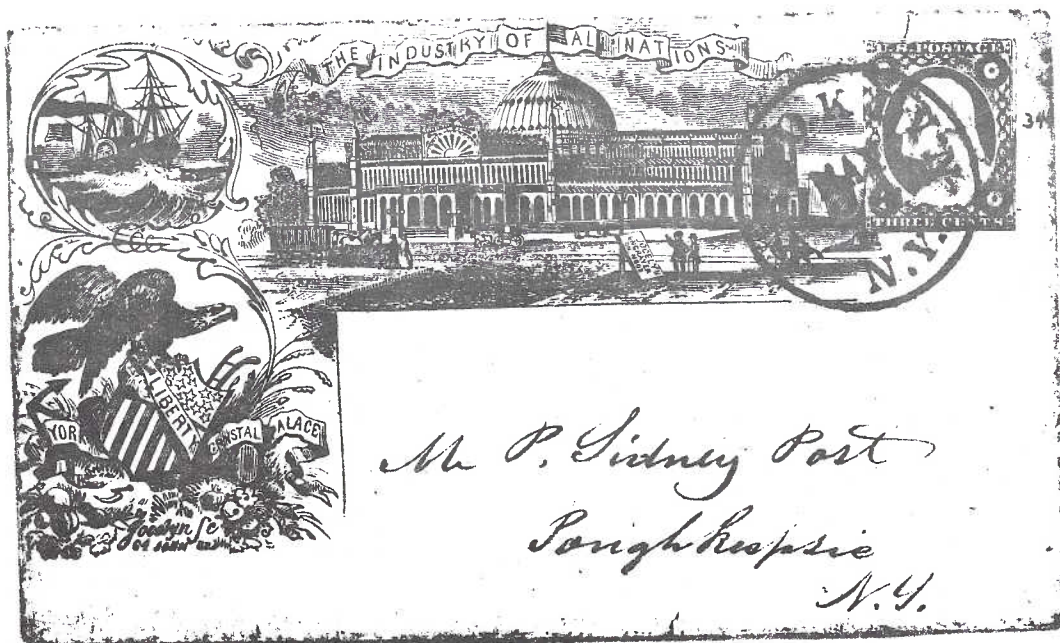 THE INDUSTRY OF AL NATIONS
U.S. POSTAGE
THREE CENTS
34
N.Y.
LIBERTY
YOR CRYSTAL ALACE
Jocelyn Sc
Mr P. Sidney Post
Poughkeepsie
N.Y.